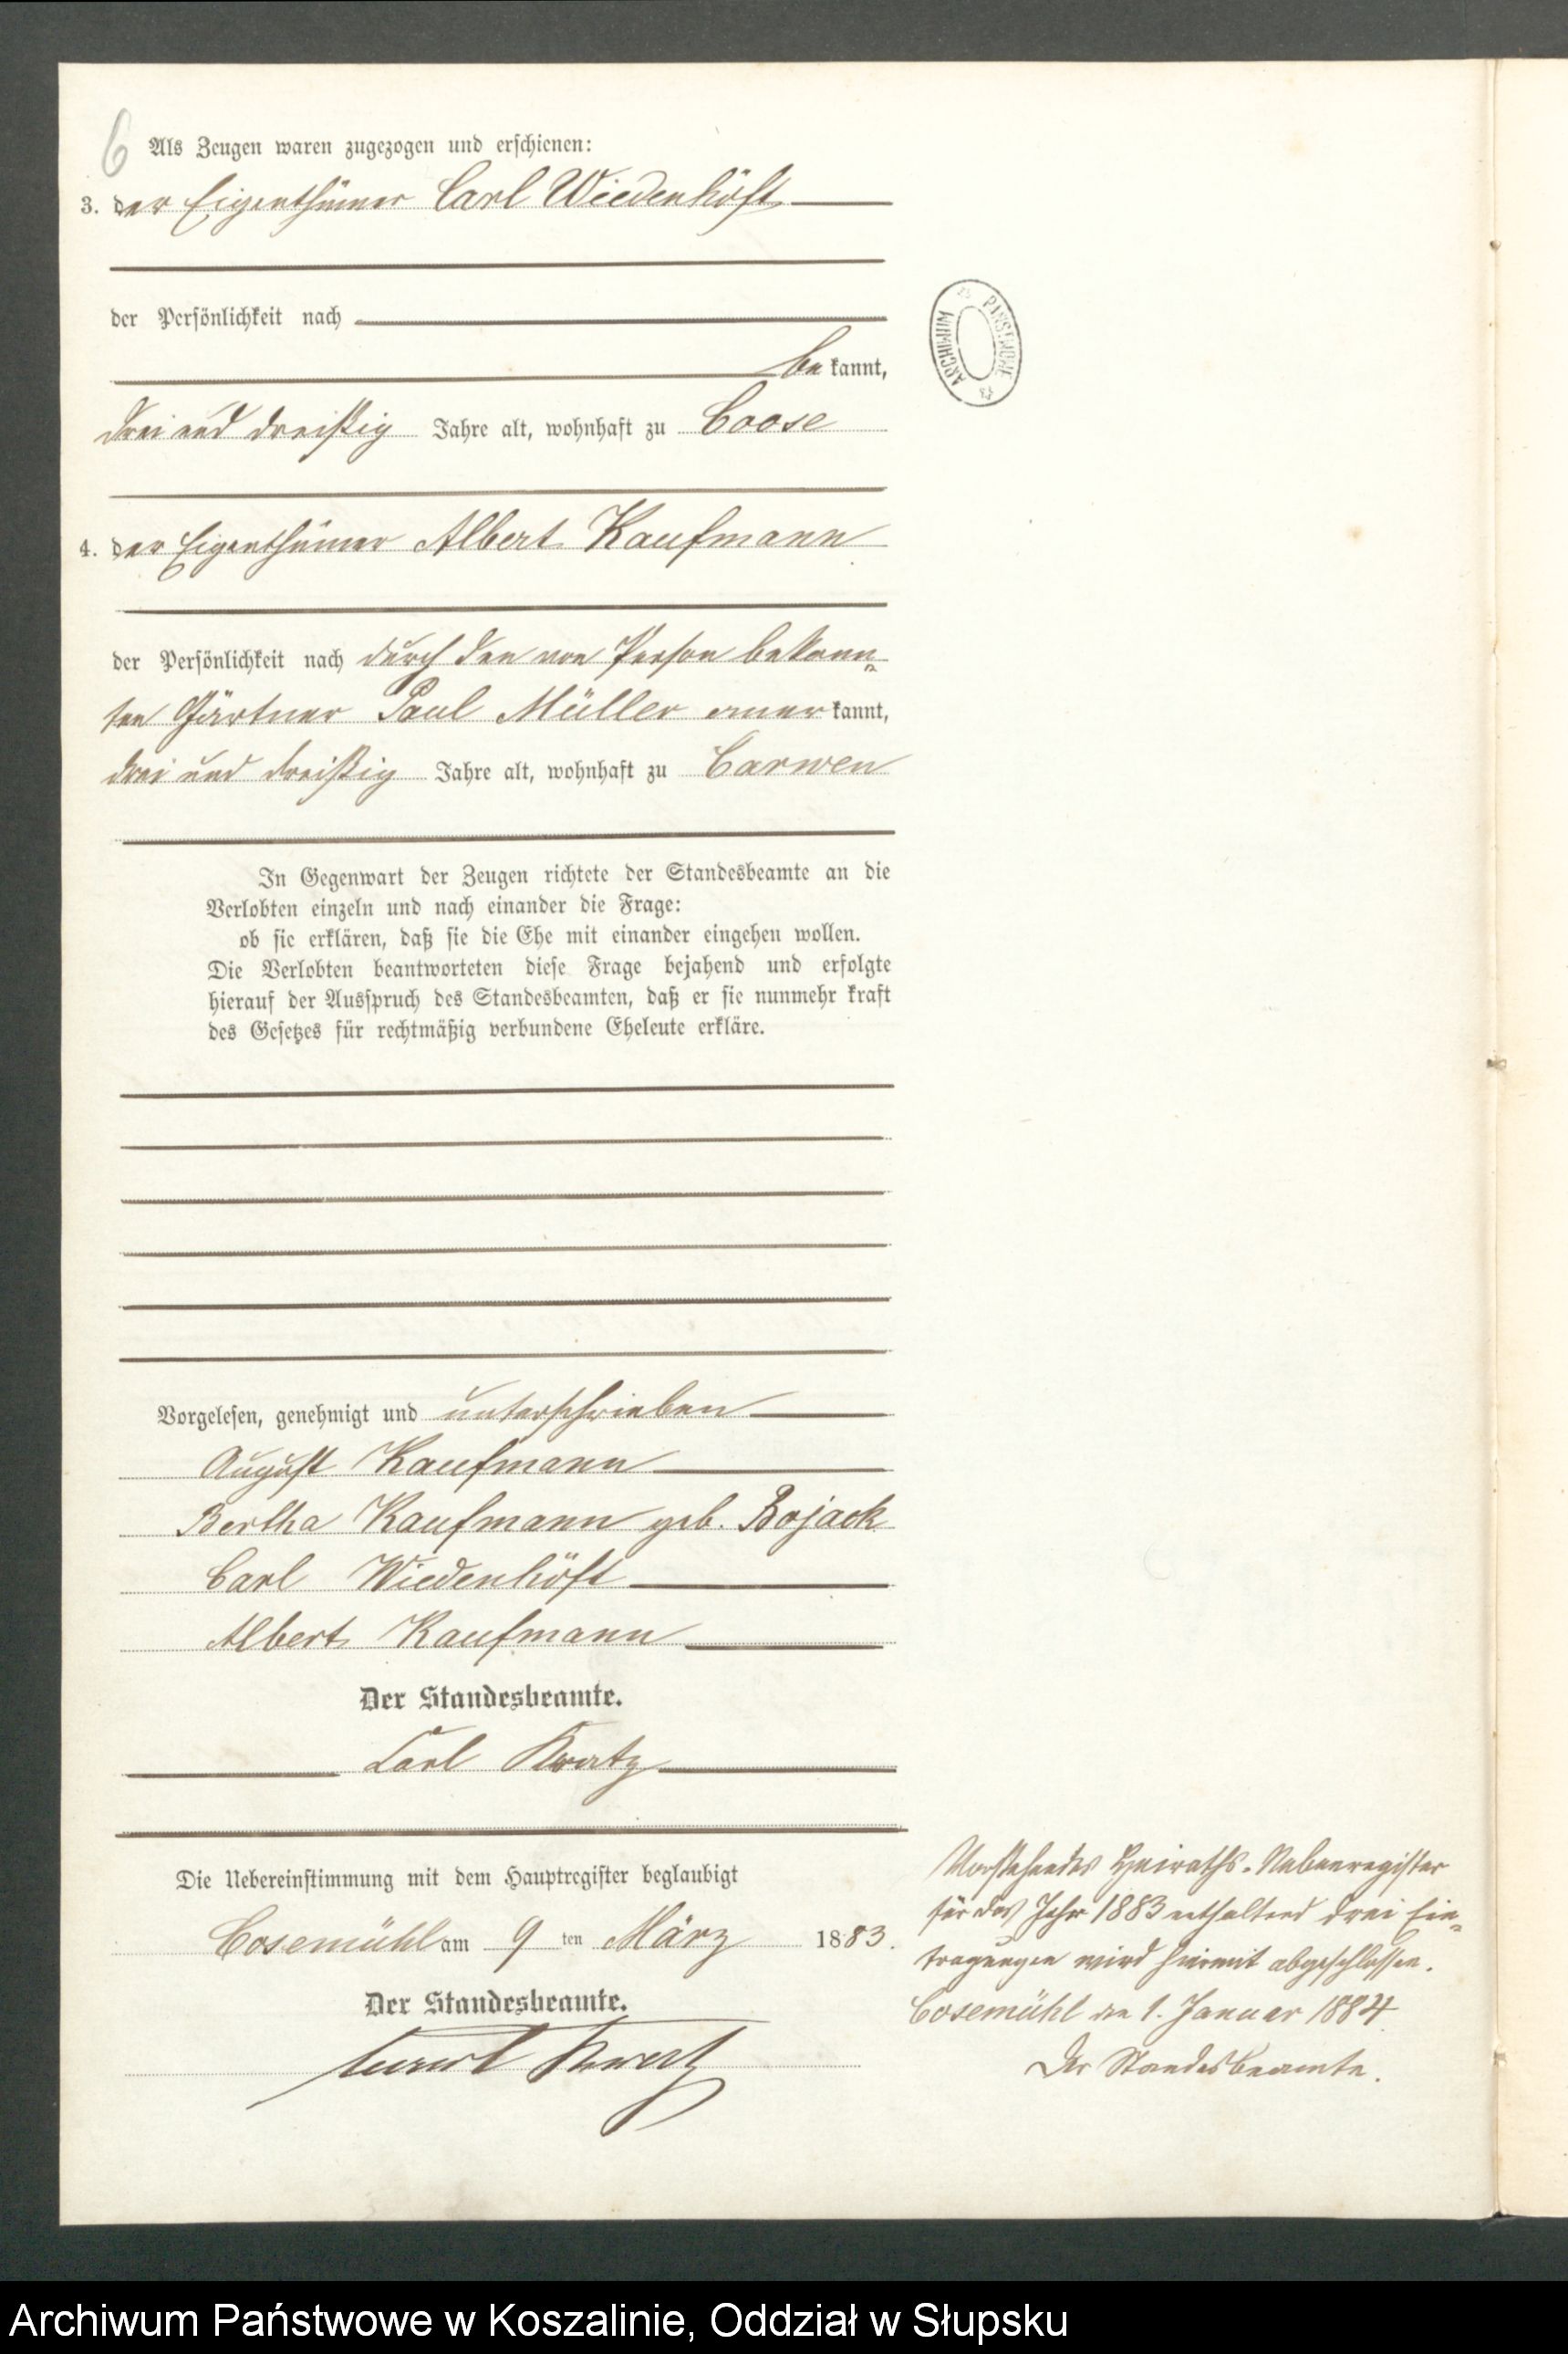 6
Als Zeugen waren zugezogen und erschienen:
3. der Eigenthümer Carl Wiedenhöft
der Persönlichkeit nach
be kannt,
drei und dreißig Jahre alt, wohnhaft zu Coose
4. der Eigenthümer Albert Kaufmann
der Persönlichkeit nach durch den von Person bekann-
ten Gärtner Paul Müller aner kannt,
drei und dreißig Jahre alt, wohnhaft zu Carwen
In Gegenwart der Zeugen richtete der Standesbeamte an die
Verlobten einzeln und nach einander die Frage:
ob sie erklären, daß sie die Ehe mit einander eingehen wollen.
Die Verlobten beantworteten diese Frage bejahend und erfolgte
hierauf der Ausspruch des Standesbeamten, daß er sie nunmehr kraft
des Gesetzes für rechtmäßig verbundene Eheleute erkläre.
Vorgelesen, genehmigt und unterschrieben
August Kaufmann
Bertha Kaufmann geb. Bojack
Carl Wiedenhöft
Albert Kaufmann
Der Standesbeamte.
Carl
Die Uebereinstimmung mit dem Hauptregister beglaubigt
Cosemühl am 9 ten März 1883.
Der Standesbeamte.
ARCHIWUM PAŃSTWOWE
Vorstehendes Heiraths-Nebenregister
für das Jahr 1883 enthaltend drei Ein-
tragungen wird hiermit abgeschlossen.
Cosemühl den 1. Januar 1884
Der Standesbeamte.
Archiwum Państwowe w Koszalinie, Oddział w Słupsku